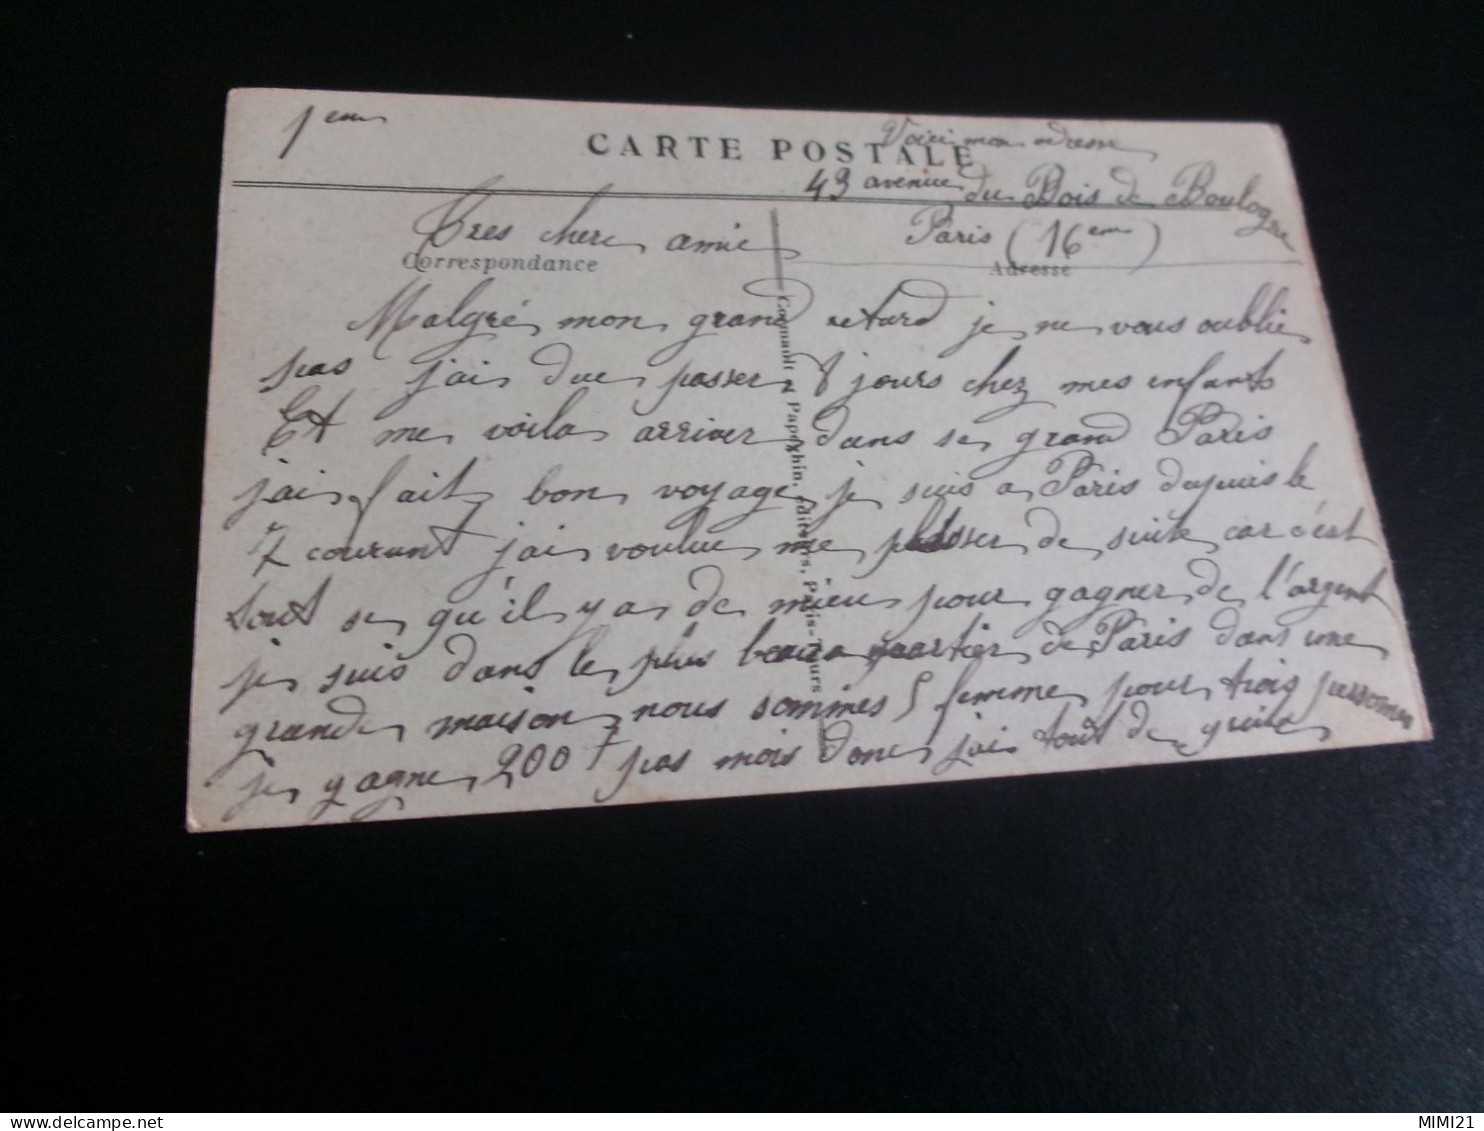 1em
CARTE POSTALE
Voici mon adresse
43 avenue du Bois de Boulogne
Paris (16em)
Tres chere amie
Correspondance
Adresse
Malgré mon grand retard je ne vous oublie
pas j'ai due passer 8 jours chez mes enfants
Et me voila arriver dans se grand Paris
jai fait bon voyage je suis a Paris depuis le
7 courant j'ai voulue me plasser de suite car c'est
tout se qu'il y a de mieu pour gagner de l'argent
je suis dans le plus beau quartier de Paris dans une
grande maison nous sommes 5 femme pour trois personnes
je gagne 200 f pas mois donc jai tout de suite
Papeghin, éditeurs, Paris-Tours
MIMI21